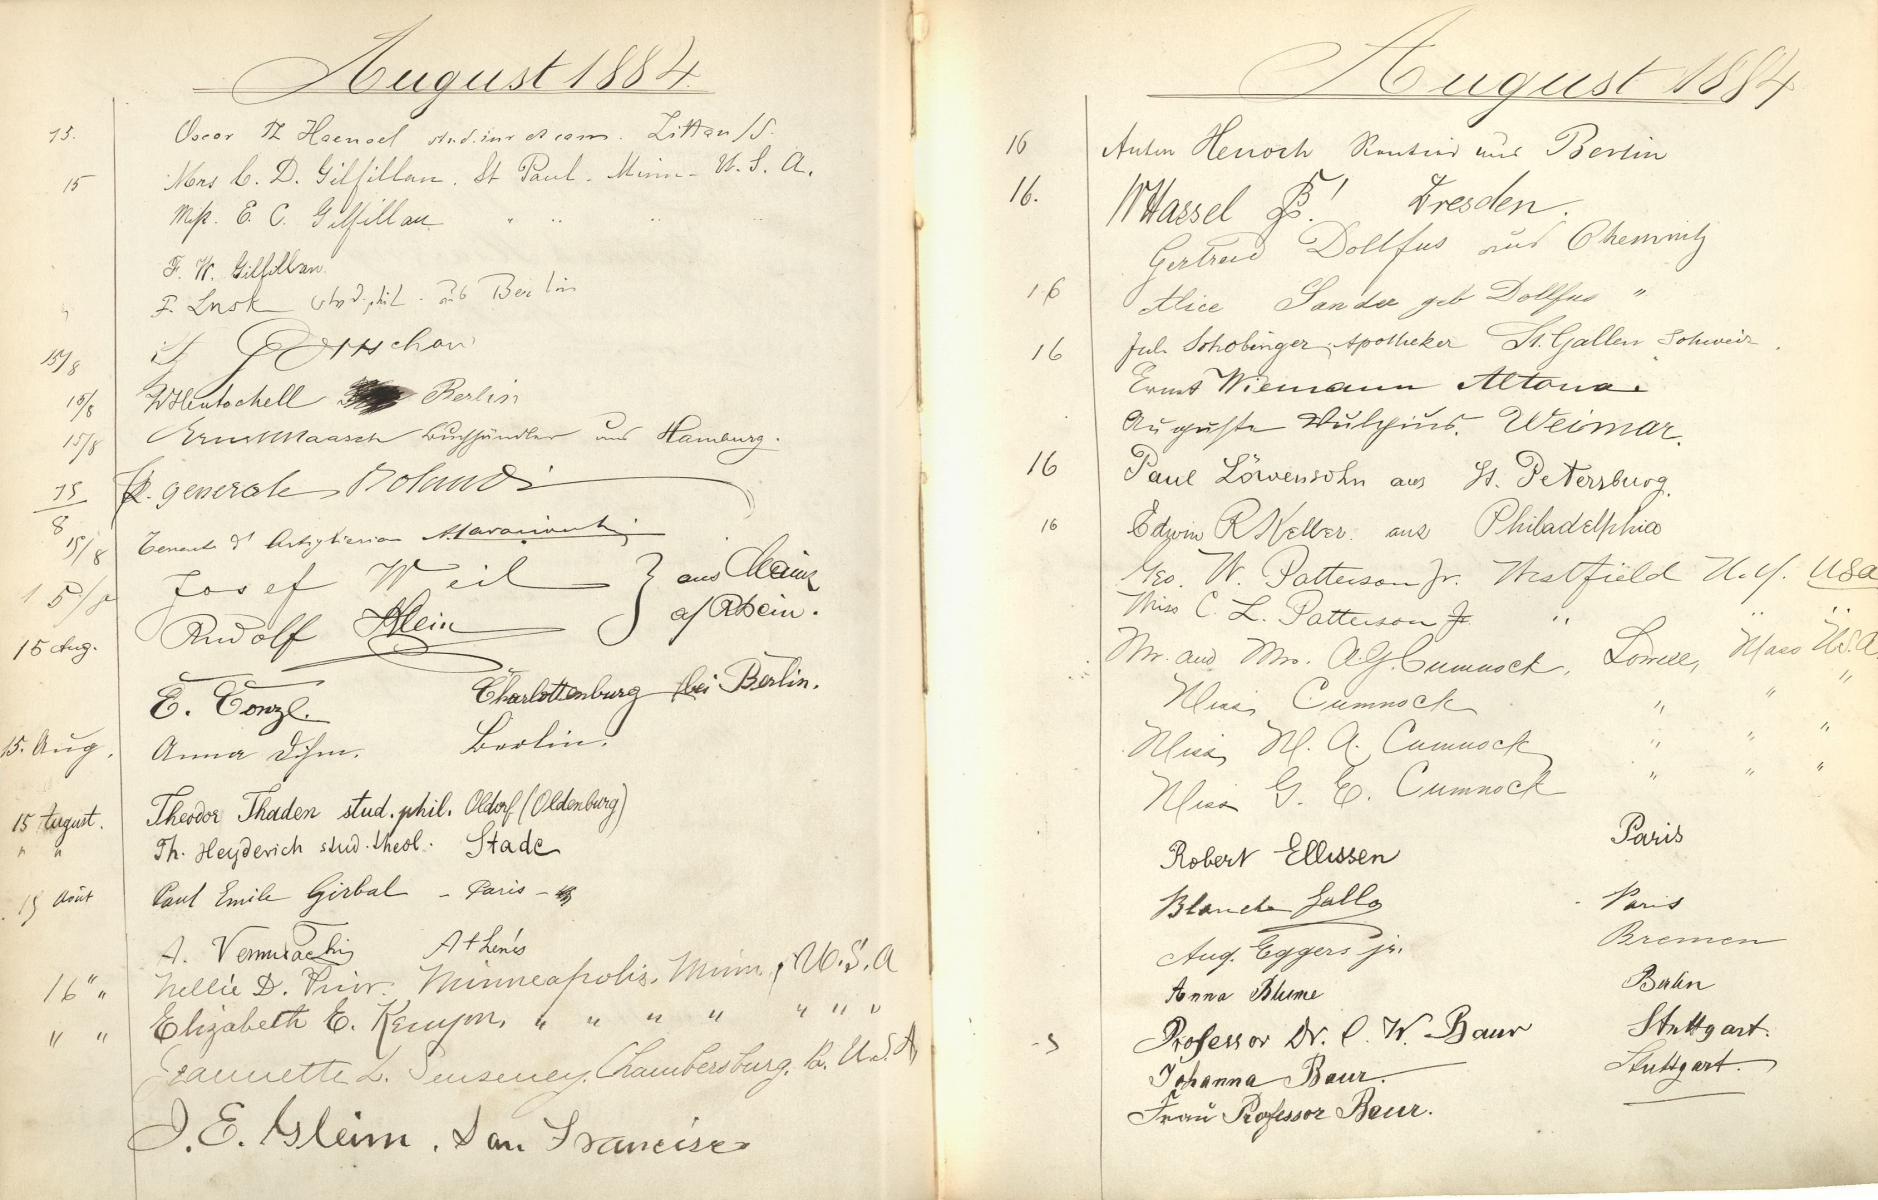 August 1884.
15. Oscar Th Haensel stud. jur et cam. Zittau /S.
15 Mrs C. D. Gilfillan. St Paul - Minn - U. S. A.
Miss. E. C. Gilfillan " " " "
F. W. Gilfillan
F. Lusk stud. phil. aus Berlin
15/8
15/8 WHentschell Berlin
15/8 Ernst Maasch Buchhändler aus Hamburg.
15/8 generale Bolandi
15/8 Tenente d'Artiglieria
15/8 Josef Weil } aus Mainz
15 Aug. Rudolf Klein a/Rhein.
E. Conzl. Charlottenburg bei Berlin.
15. Aug. Anna Ihm. Berlin.
15 August. Theodor Thaden stud. phil. Oldorf (Oldenburg)
" " Th. Heyderich stud. theol. Stade
15 Août Paul Emile Girbal - Paris -
A. Athenes
16 " " Nellie D. Minneapolis. Minn, U.S.A
" " Elizabeth E. Kenyon, " " " " " " "
Jeannette L. Senseney. Chambersburg. Pa. U.S.A
J. E. Gleim. San Francisco
August 1884
16 Anton Henoch Rentier aus Berlin
16. WHassel Dresden.
Gertrud Dollfus aus Chemnitz
16 Alice Sander geb Dollfus "
16 Jul. Schobinger, Apotheker St. Gallen Schweiz.
Ernst Wiemann Altona.
Auguste Vulpius. Weimar.
16 Paul Löwensohn aus St. Petersburg.
16 Edwin R Keller. aus Philadelphia
Geo. W. Patterson Jr. Westfield N. Y. USA
Miss C. L. Patterson " " "
Mr. and Mrs. A. G. Cumnock, Lowell, Mass U.S.A
Miss Cumnock " " "
Miss M. A. Cumnock " " "
Miss G. E. Cumnock " " "
Robert Ellissen Paris
Blanche Gallo Paris
Aug. Eggers jr. Bremen
Anna Blume Berlin
Professor Dr. C. W. Baur Stuttgart.
Johanna Baur. Stuttgart.
Frau Professor Baur.